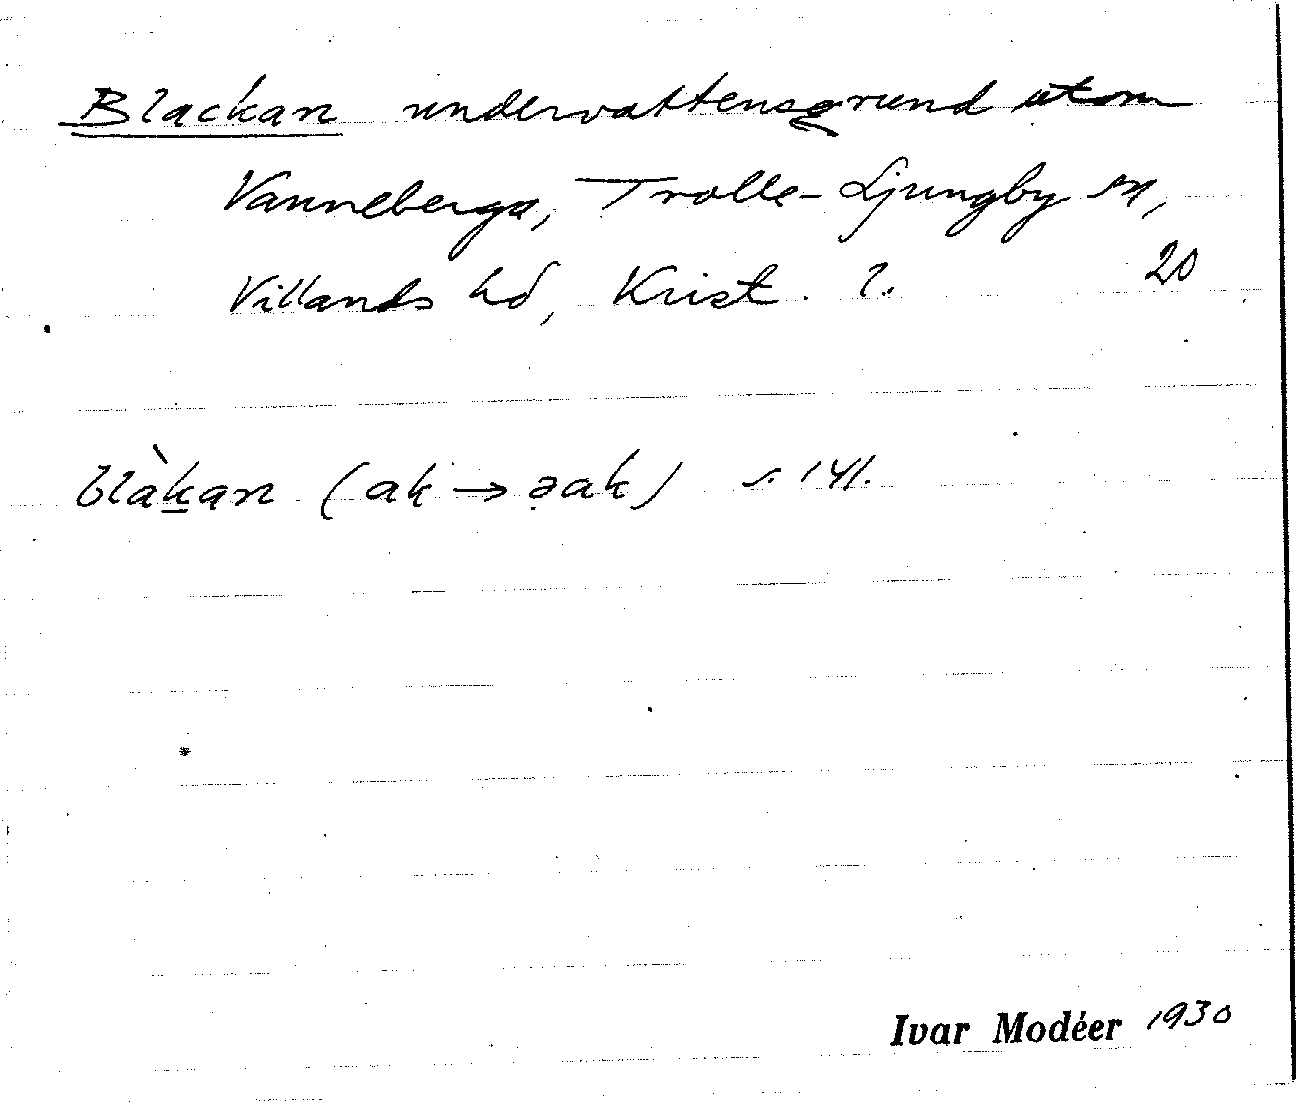 Blackan undervattensgrund utom
Vanneberga, Trolle-Ljungby sn,
Villands hd, Krist. l. 20
blàkan (ak → əak) s. 141.
Ivar Modéer 1930